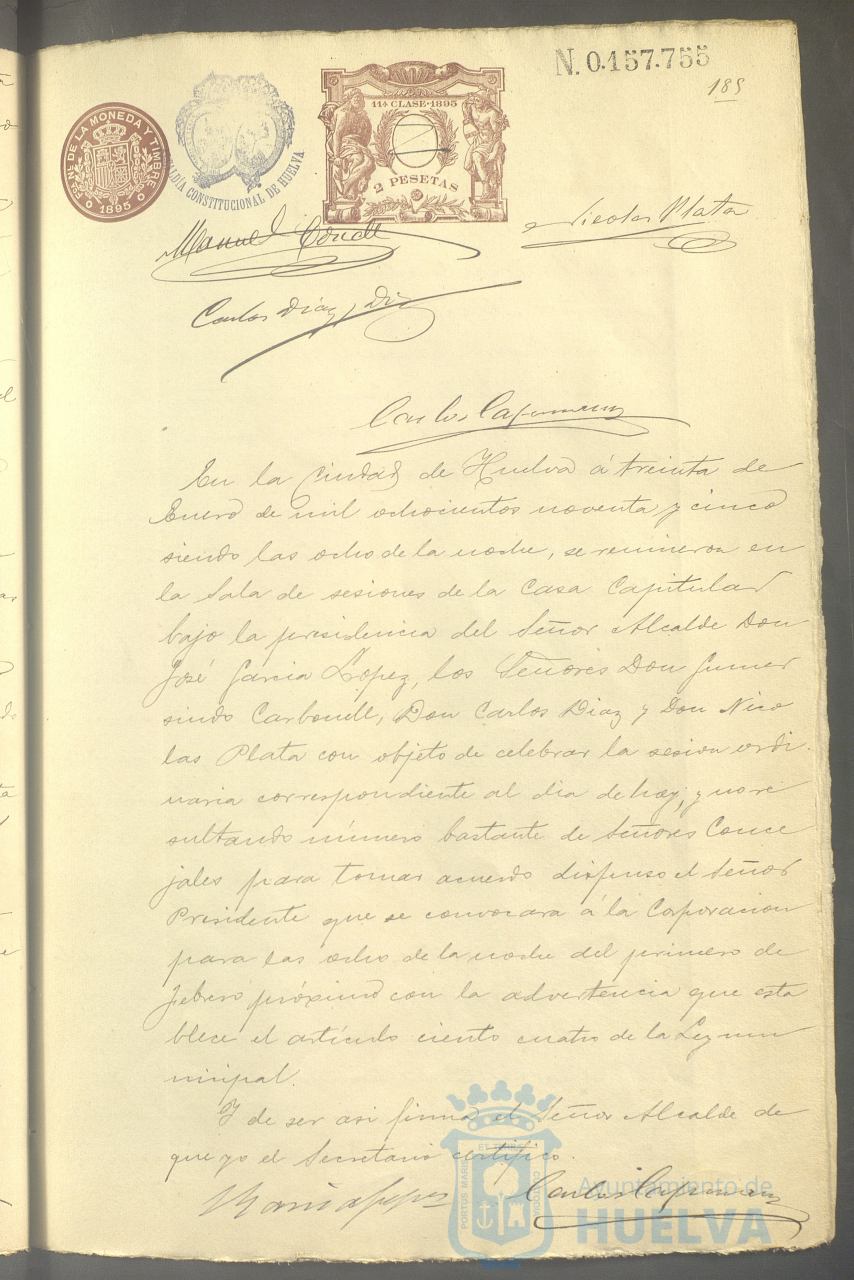 N. 0.157.755
185
11ª CLASE·1895
2 PESETAS
FCA NL DE LA MONEDA Y TIMBRE
1895
ALCALDÍA CONSTITUCIONAL DE HUELVA
Manuel Conde
Nicolas Plata
Carlos Diaz y Diz
Carlos
En la Ciudad de Huelva á treinta de
Enero de mil ochocientos noventa y cinco
siendo las ocho de la noche, se reunieron en
la Sala de sesiones de la Casa Capitular
bajo la presidencia del Señor Alcalde Don
José Garcia Lopez, los Señores Don Gumer
sindo Carbonell, Don Carlos Diaz y Don Nico
las Plata con objeto de celebrar la sesion ordi
naria correspondiente al dia de hoy; y no re
sultando número bastante de Señores Conce
jales para tomar acuerdo dispuso el Señor
Presidente que se convocara á la Corporacion
para las ocho de la noche del primero de
Febrero próximo con la advertencia que esta
blece el artículo ciento cuatro de la Ley mu
nicipal.
Y de ser asi firma el Señor Alcalde de
que yo el Secretario certifico.
Garcia Lopez
Carlos
PORTUS MARIS
CUSTODIA
Ayuntamiento de
HUELVA